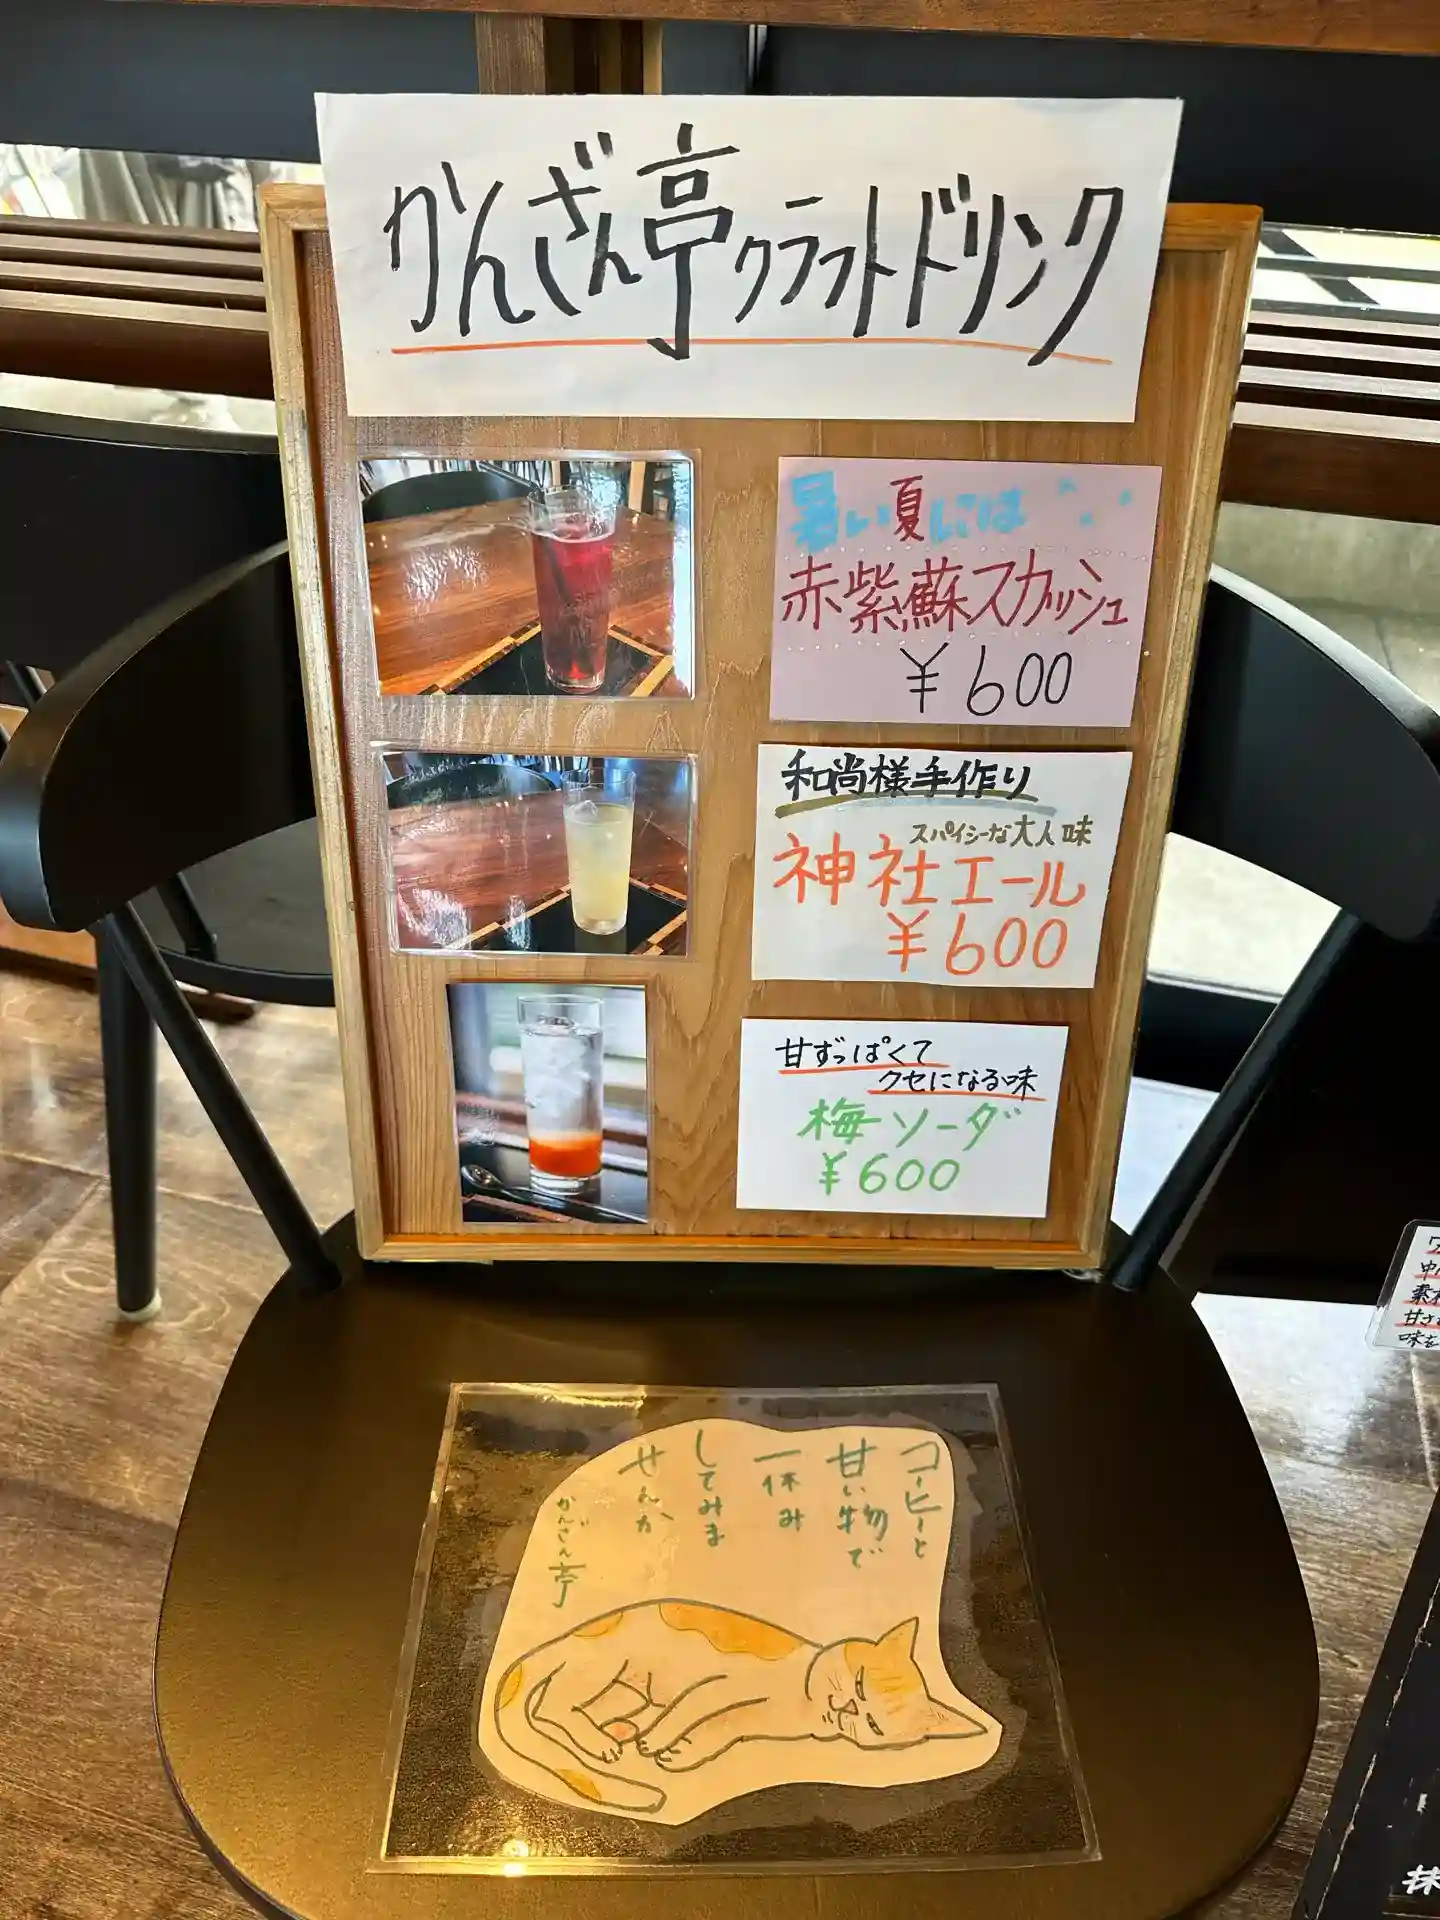 かんざん亭クラフトドリンク
暑い夏には
赤紫蘇スカッシュ
￥600
和尚様手作り
スパイシーな大人味
神社エール
￥600
甘ずっぱくて
クセになる味
梅ソーダ
￥600
コーヒーと
甘い物で
一休み
してみま
せんか
かんざん亭
甘さ
味を
抹